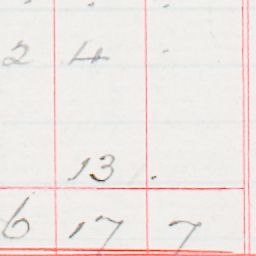 2 4 .
13 .
6 17 7